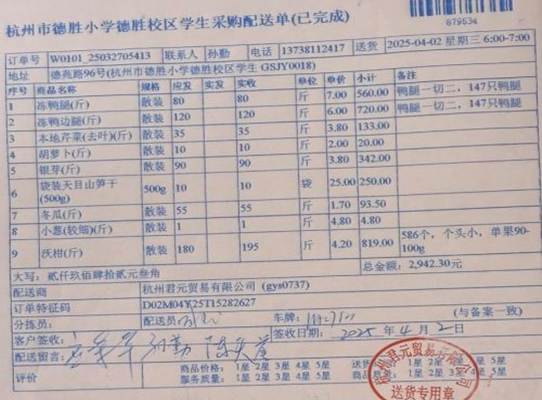 杭州市德胜小学德胜校区学生采购配送单(已完成)
879534
订单号 W0101_25032705413 联系人 孙勤 电话 13738112417 送货 2025-04-02 星期三 6:00-7:00
地址 德苑路96号(杭州市德胜小学德胜校区学生 GSJY0018)
序号 商品名称 规格 应发 实发 实收 单位 单价 小计 备注
1 冻鸭腿(斤) 散装 80 80 斤 7.00 560.00 鸭腿一切二，147只鸭腿
2 冻鸭边腿(斤) 散装 120 120 斤 6.00 720.00 鸭腿一切二，147只鸭腿
3 本地芹菜(去叶)(斤) 散装 35 35 斤 3.80 133.00
4 胡萝卜(斤) 散装 10 10 斤 2.00 20.00
5 银芽(斤) 散装 90 90 斤 3.80 342.00
6 袋装天目山笋干(500g) 500g 10 10 袋 25.00 250.00
7 冬瓜(斤) 散装 55 55 斤 1.70 93.50
8 小葱(较细)(斤) 散装 1 1 斤 4.80 4.80
9 沃柑(斤) 散装 180 195 斤 4.20 819.00 586个，个头小，单果90-100g
大写：贰仟玖佰肆拾贰元叁角 总金额：2,942.30元
配送商 杭州君元贸易有限公司 (gys0737)
订单特征码 D02M04Y25T15282627
分拣员： 配送员： 车牌： (与备案一致)
客户签收： 孙勤 签收日期： 2025年4月2日
配送留言：
评价 商品价格： 1星 2星 3星 4星 5星 1星 2星 3星 4星 5星
服务质量： 1星 2星 3星 4星 5星 1星 2星 3星 4星 5星
杭州君元贸易有限公司
送货专用章